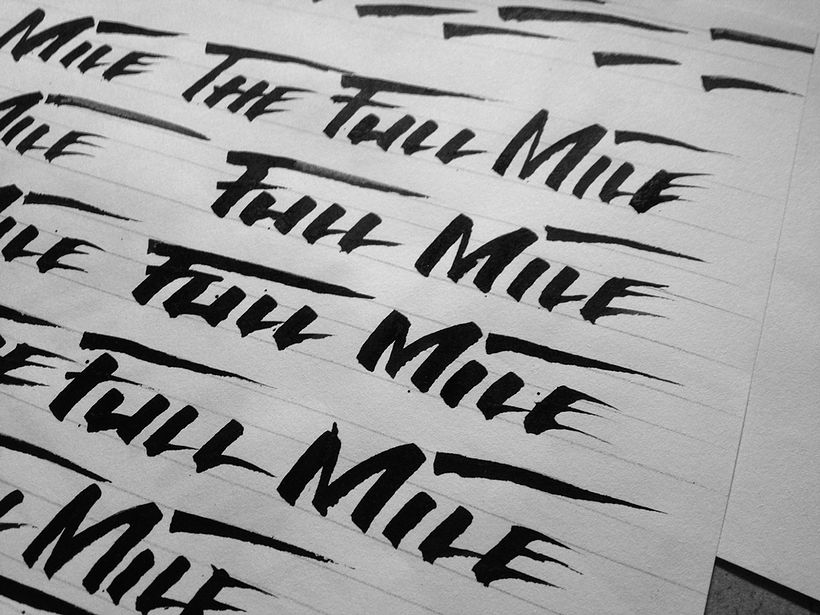 MILE THE FULL MILE
MILE FULL MILE
ILE FULL MILE
E FULL MILE
MILE